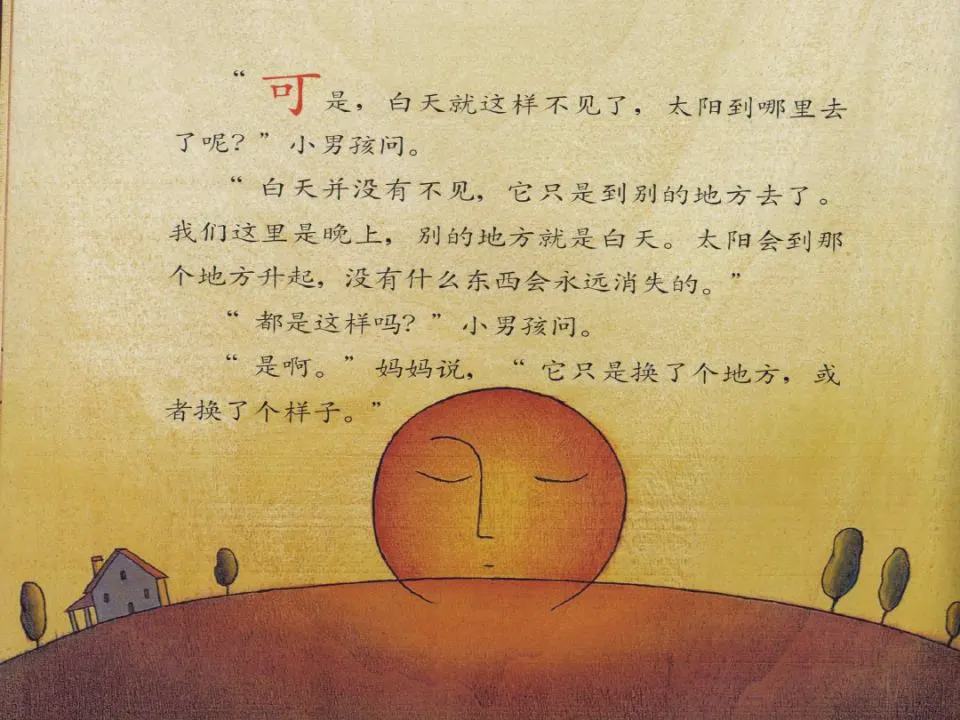 “可是，白天就这样不见了，太阳到哪里去
了呢？”小男孩问。
“白天并没有不见，它只是到别的地方去了。
我们这里是晚上，别的地方就是白天。太阳会到那
个地方升起，没有什么东西会永远消失的。”
“都是这样吗？”小男孩问。
“是啊。”妈妈说，“它只是换了个地方，或
者换了个样子。”